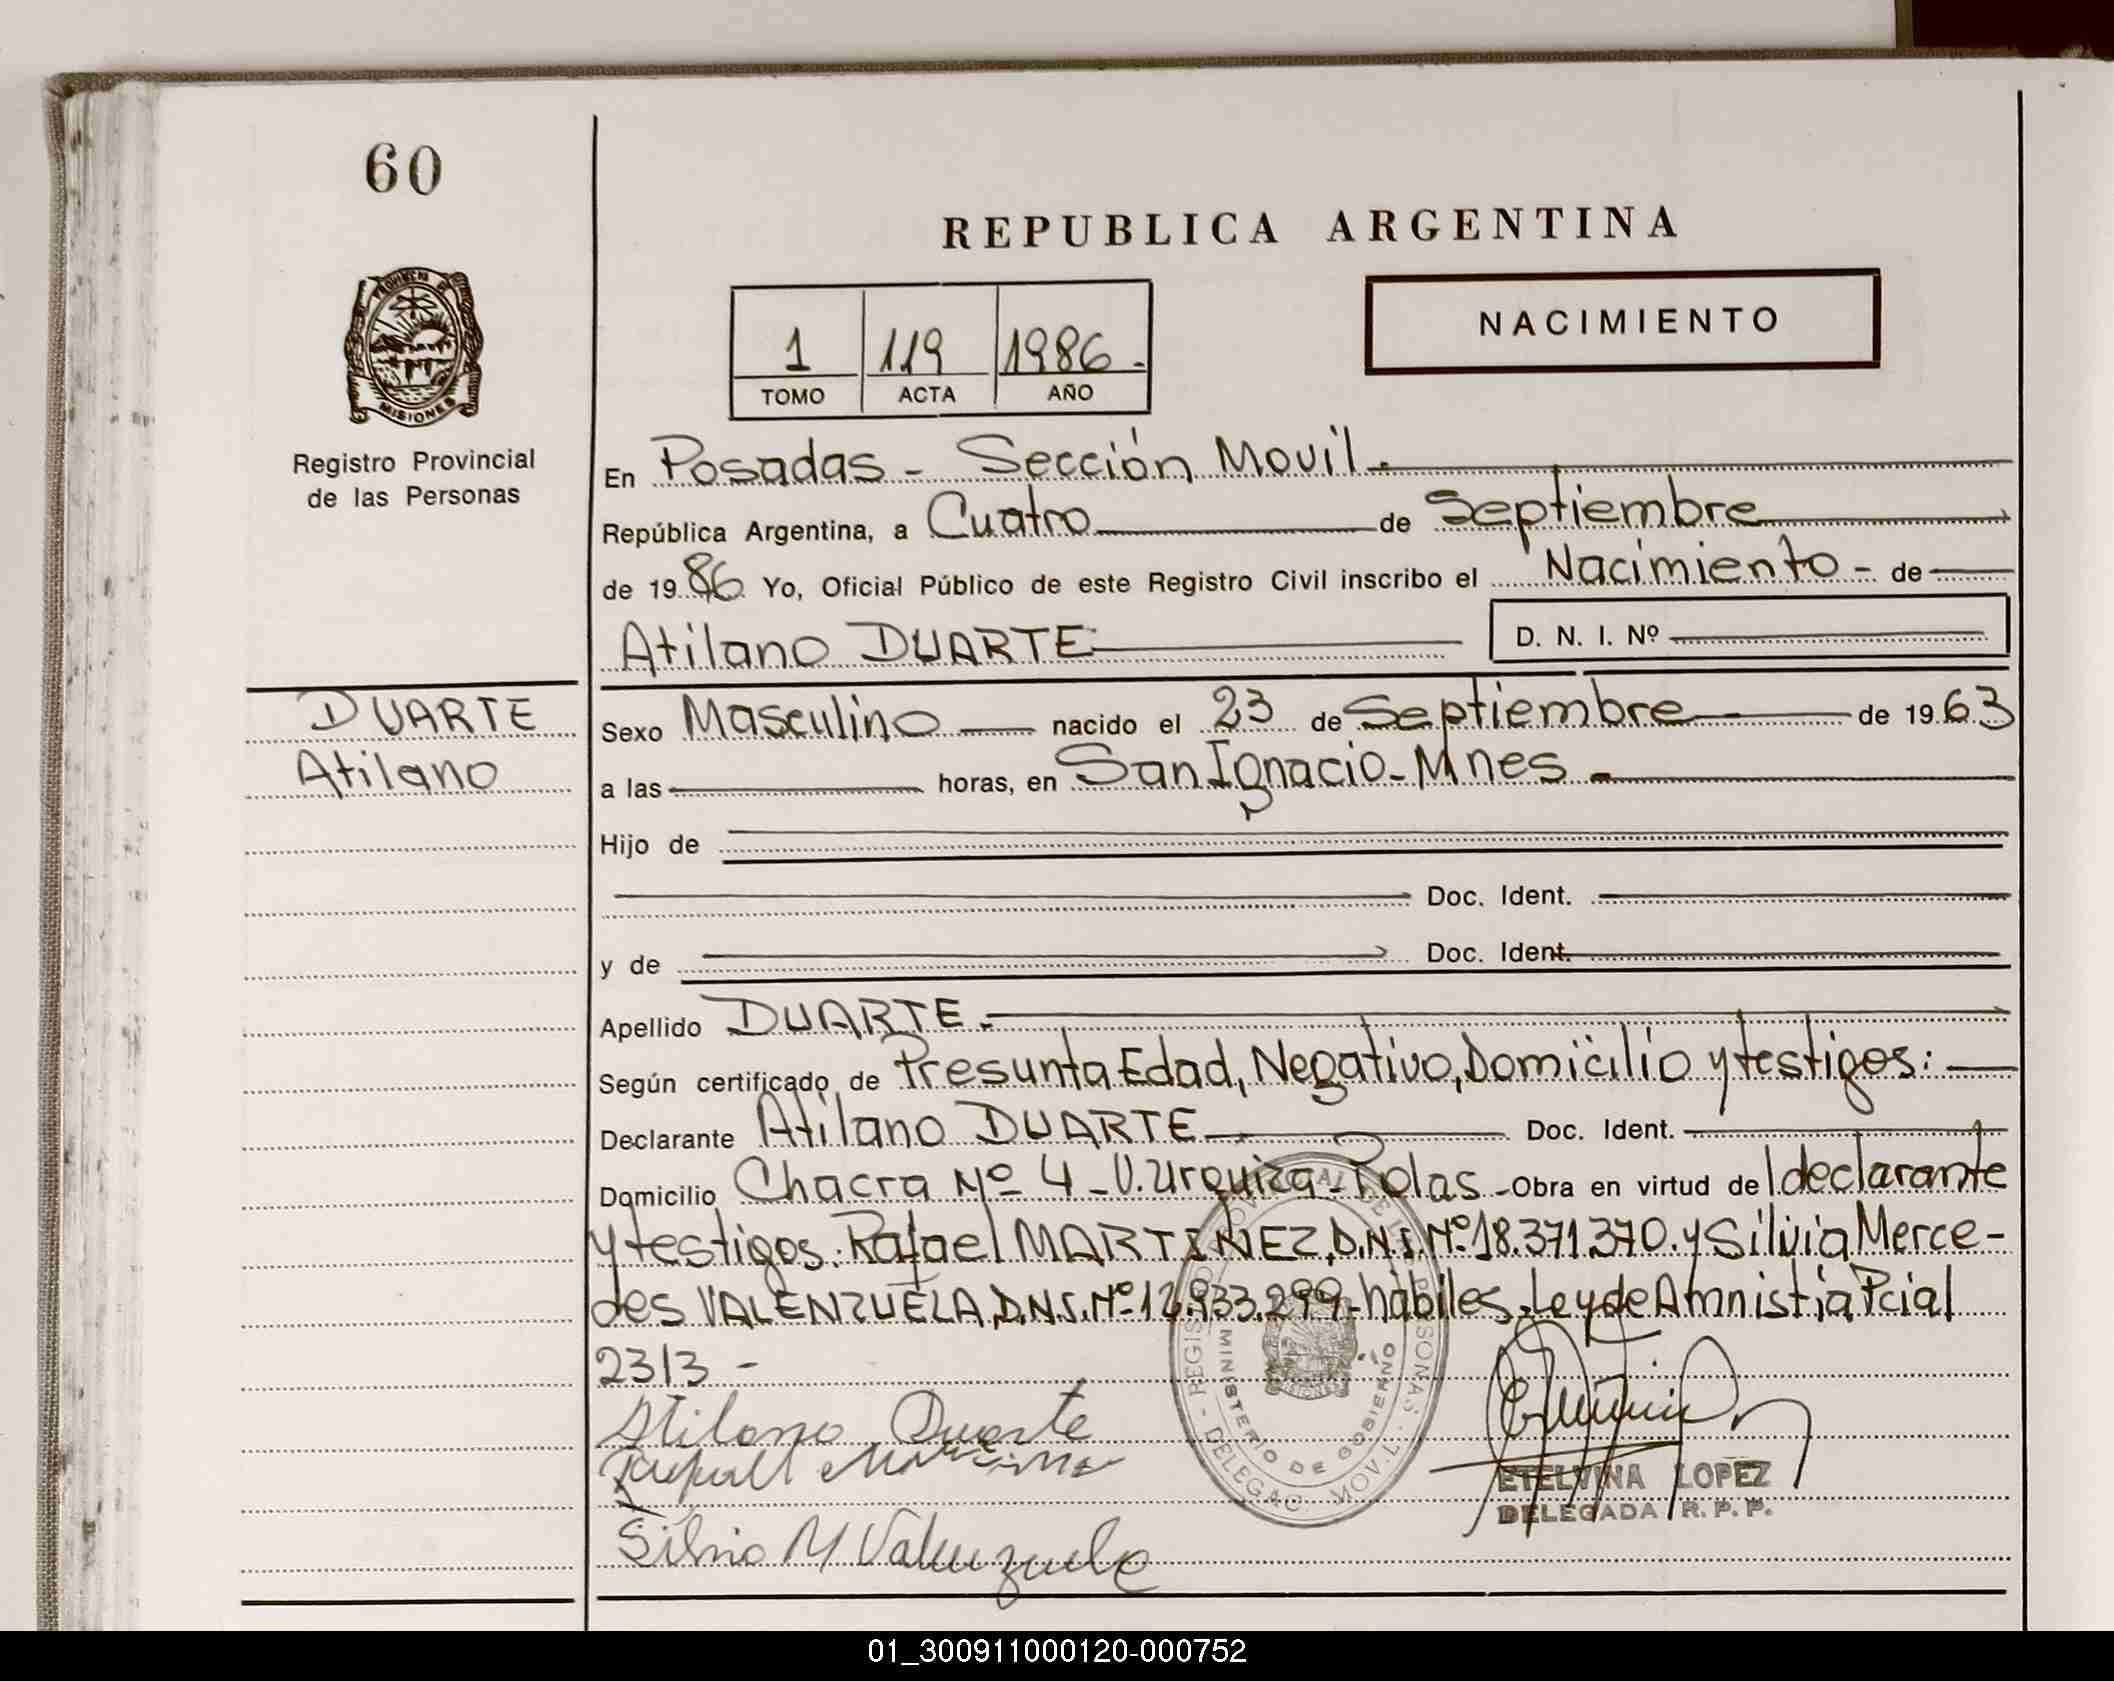 60
REPUBLICA ARGENTINA
NACIMIENTO
1 119 1986.-
TOMO ACTA AÑO
PROVINCIA DE
MISIONES
Registro Provincial
de las Personas
En Posadas - Sección Movil.-
República Argentina, a Cuatro de Septiembre
de 1986. Yo, Oficial Público de este Registro Civil inscribo el Nacimiento - de
Atilano DUARTE D. N. I. Nº
DUARTE
Atilano
Sexo Masculino nacido el 23 de Septiembre de 1963
a las horas, en San Ignacio - Mnes -
Hijo de
Doc. Ident.
y de Doc. Ident.
Apellido DUARTE.-
Según certificado de Presunta Edad, Negativo, Domicilio y testigos:
Declarante Atilano DUARTE Doc. Ident.
Domicilio Chacra Nº 4 - V. Urquiza - Pdas - Obra en virtud del declarante
y testigos: Rafael MARTINEZ, D.N.I. Nº 18.371.370. y Silvia Merce-
des VALENZUELA, D.N.I. Nº 12.933.299 - hábiles. Ley de Amnistía Pcial
2313 -
Atilano Duarte
Rafael Martinez
Silvia M Valenzuela
REGISTRO PROVINCIAL DE LAS PERSONAS - DELEGAC. MOVIL
MINISTERIO DE GOBIERNO
ETELVINA LOPEZ
DELEGADA R. P. P.
01_300911000120-000752